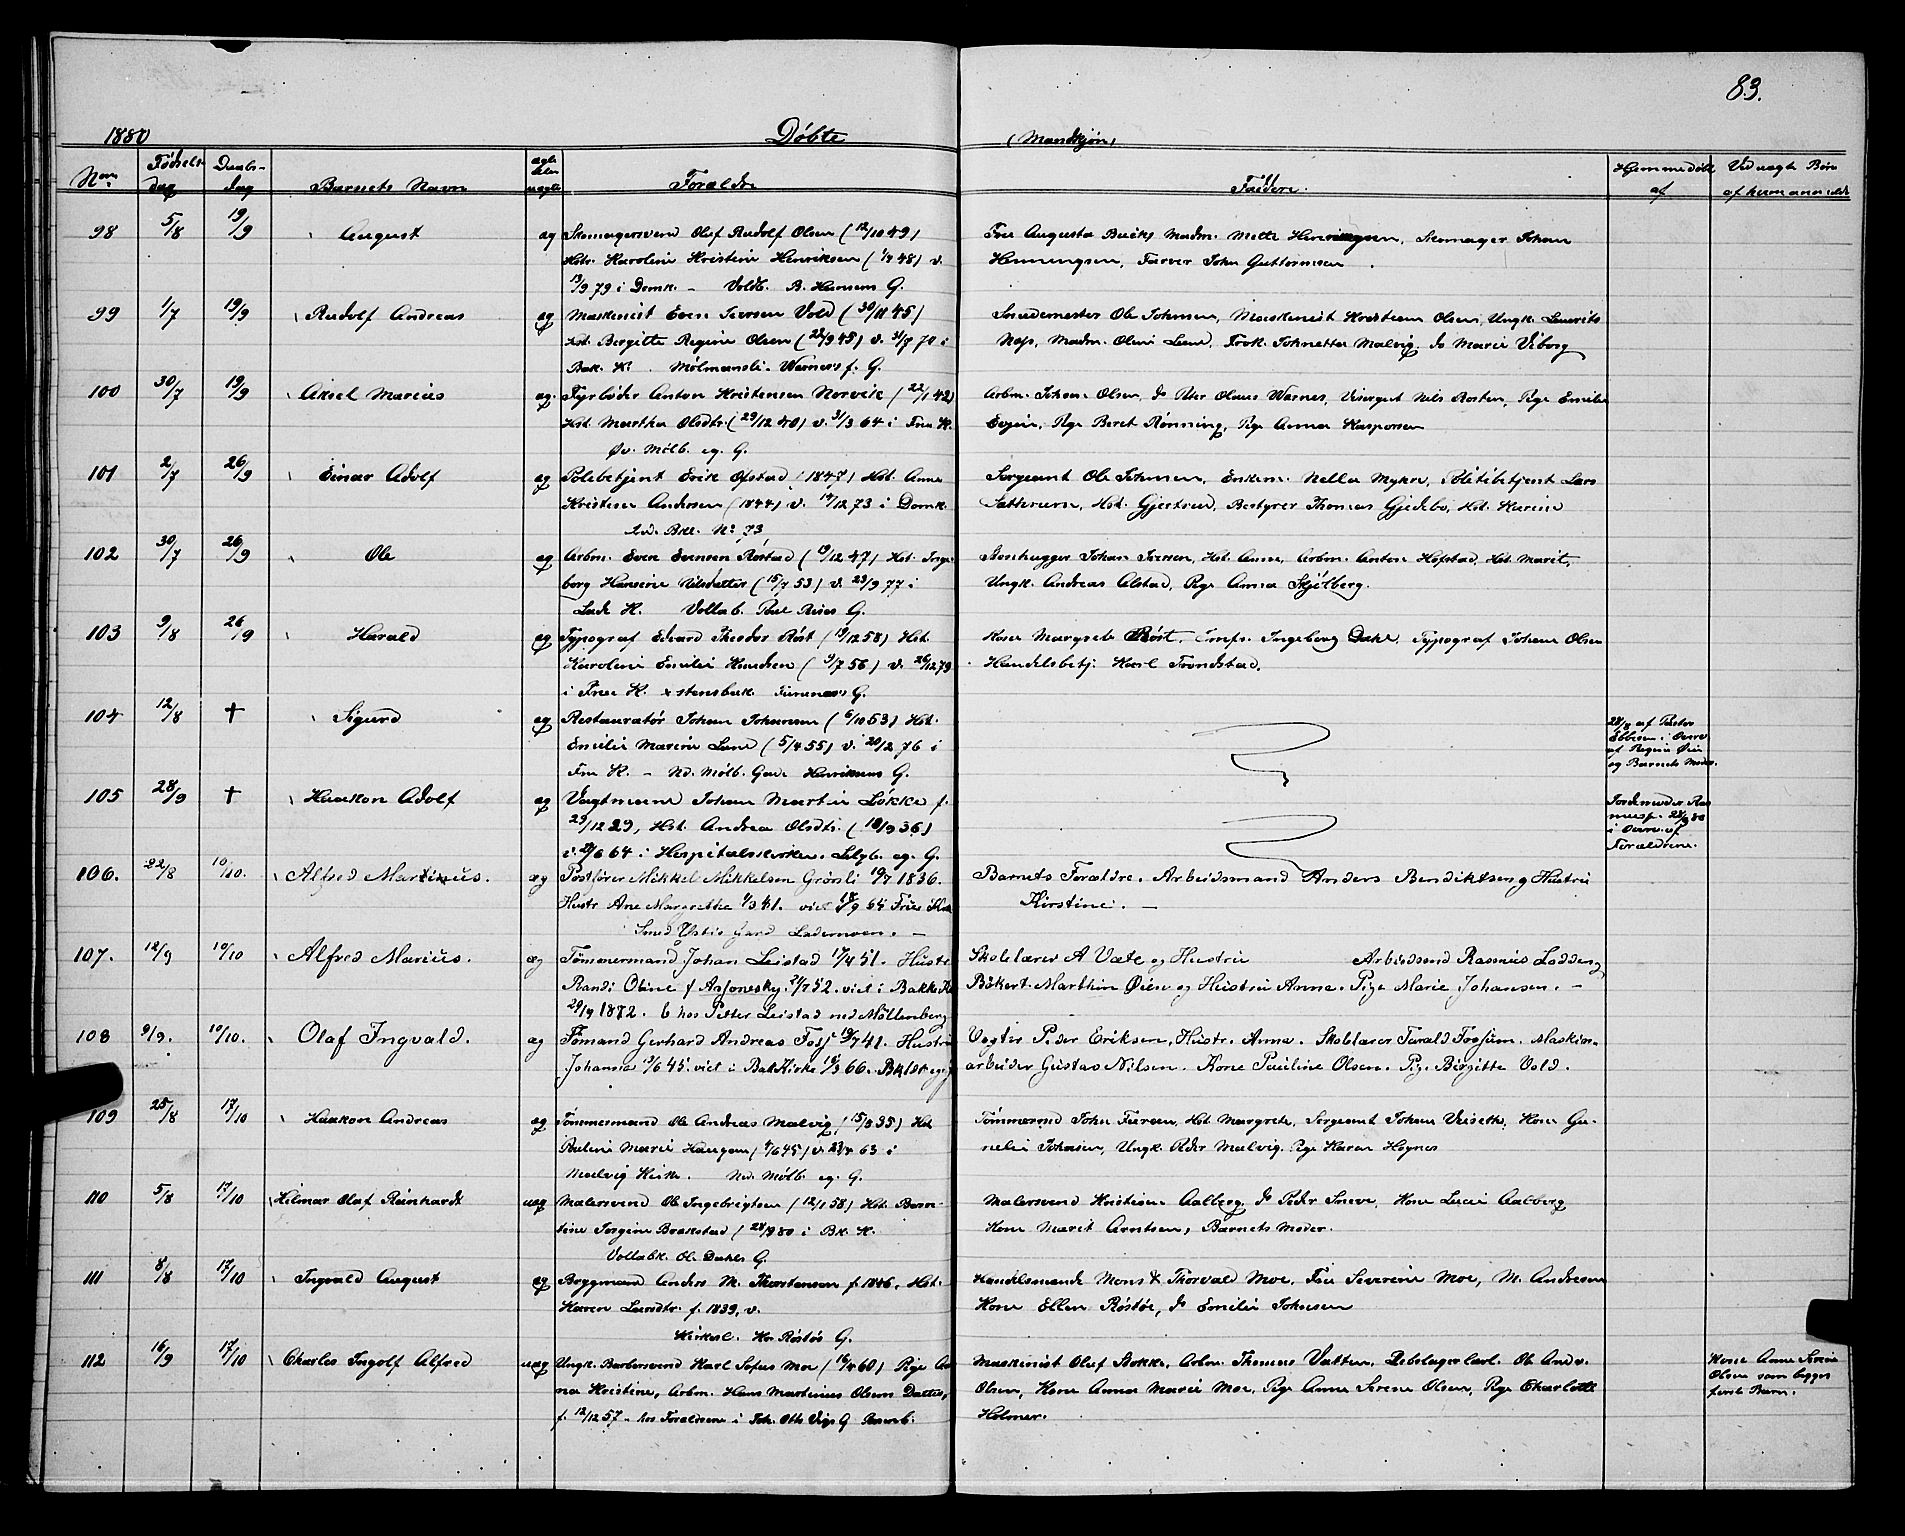 83.
1880 Døbte (Mandkjøn)
Nm. Fødselsdag Daabsdag Barnets Navn ægte eller uægte Forældre Faddere. Hjemmedøbt af Ved uægte Børn af hvem anmeldt
98 5/8 19/9 August æg Skomagersvend Oluf Rudolf Olsen (12/10 49)
Hstr. Karoline Kristine Henriksen (1/4 48) v.
13/9 79 i Domk. – Voldb. B. Hansens G.
Fru Augusta Bucks Madm. Mette Henningsen, Skomager Johan
Henningsen, Farver John Guttormsen
99 1/7 19/9 Rudolf Andreas æg Maskinist Even Iversen Vold (30/11 45)
Hst. Birgitte Regine Olsen v. 31/7 70 i
Bak. K. Mølmansli. Warners f. G.
Snedkermester Ole Johnsen, Maskinist Kristian Olsen, Ungk. Laurits
Madm. Oline Lund, Frøk. Johnetta Malvig, do Marie Viborg
100 30/7 19/9 Axel Marius æg. Fyrbøder Anton Kristensen Norvik (22/1 42)
Hst. Martha Olsdtr. (29/12 40) v. 31/3 64 i Frue K.
Øv. Mølb. eg. G.
Arbm. Johan Olsen, do Peter Olaus Warnes, Visergut Nils Rosten, Pige Emilie
Evjen, Pige Beret Rønning, Pige Anna Kaspersen
101 2/7 26/9 Einar Adolf æg Polibetjent Erik Ofstad (1847) Hst. Anna
Kristine Andersen (1844) v. 14/12 73 i Domk.
Bkl. No. 73
Sergeant Ole Johnsen, Enkem. Nella Myhre, Politibetjent Lars
Sætterum, Hst. Gjertrud, Bestyrer Thomas Gjedebo, Hst. Karine
102 30/7 26/9 Ole æg Arbm. Even Evensen Røstad (19/12 47) Hst. Inge-
borg Hansine Nilsdatter (15/7 53) v. 23/9 77 i
Lade K. Vollab. Paul Ruses G.
Stenhugger Johan Iversen, Hst. Anne, Arbm. Anton Hofstad, Hst. Marit,
Ungk. Andreas Alstad, Pige Anna Skjølberg.
103 9/8 26/9 Harald æg Typograf Edvard Theodor Røst (19/12 58) Hst.
Karoline Emilie Knudsen (9/7 56) v. 26/12 79
i Frue K. G.
Kone Margrete Røst, Jmfr. Ingeborg Dahl. Typograf Johan Olsen
Handelsbetj. Karl Trondstad.
104 12/8 † Sigurd æg Restauratør Johan Johansen (6/10 53) Hst.
Emilie Marie Lund (5/4 55) v. 20/2 76 i
Frue K. – Nd. Mølb. Gade Henriksens G.
28/8 af Pastor
Ebbesen i Overv.
af Regine Øien
og Barnets Moder.
105 28/9 † Haakon Adolf æg Vagtmand Johan Martin Løkke f.
29/12 29, Hst. Andrea Olsdtr. (18/9 36)
v. 29/6 64 i Hospitalskirken. Lilgb. eg. G.
Jordemoder Ras
musp. 28/9 80
i Overv. af
Forældrene.
106. 22/8 10/10. Alfred Martinus. æg Postfører Mikkel Mikkelsen Grønli 19/7 1836.
Hustr Ane Margrethe 1/3 41. viet 18/9 64 Frue Kirke
Smed Ystis Gaard Ladermoen. –
Barnets Forældre. Arbeidsmand Anders Bendiktsen og Hustru
Kirstine. –
107. 12/9 10/10 Alfred Marius. æg Tømmermand Johan Leistad 17/4 51. Hustr
Randi Oline f Asfonesky. 21/7 52. viet i Bakke K
29/9 1872. b hos Petter Leistad ned Møllenberg
Skolelærer A Væte og Hustru Arbeidsmd Rasmus Ladden og
Bøkert. Marthin Øien og Hustru Anna. Pige Marie Johansen. –
108 9/9. 10/10. Olaf Ingvald. æg Tømand Gerhard Andreas Fosj 19/7 41. Hustru
Johanna 13/6 45. viet i Bak Kirke 18/3 66. Bkldt eg. g
Vogter Peder Eriksen, Hustr. Anna. Skolelærer Tarald Fossum. Maskin-
arbeider Gustav Nilsen. Kone Pauline Olsen. Pige Birgitte Vold.
109 25/8 17/10 Haakon Andreas æg Tømmermand Ole Andreas Malvig (15/3 35) Hst
Pauline Marie Haugan (4/6 45) v. 23/4 63 i
Malvig Kirke. Ned. Mølb. eg. G.
Tømmermd John Iversen, Hst Margrete, Sergeant Johan Veiseth, Kone Gu-
nelie Johnsen, Ungk. Peder Malvig. Pige Karen Hognes
110 5/8 17/10 Hilmar Olaf Reinhardt uæg Malersvend Ole Ingebrigtsen (12/1 58) Hst. Bern-
tine Jorgine Brækstad (28/9 80 i Bk. K.
Vollabk. Ol. Dahls G.
Malersvend Kristian Aalberg, do Peder Sneve, Kone Lucie Aalberg
Kone Marit Arntsen, Barnets Moder.
111 8/8 17/10 Ingvald August æg Brygmand Anders M. Thorstensen f. 1846. Hst.
Karen Larsdtr. f. 1839, v.
Kirkesl. Hos Røstøs G.
Handelsmænde Mons & Thorvald Moe, Fru Severine Moe, M. Andresen
Kone Ellen Røstøe, do Emilie Johnsen
112 16/9 17/10 Charles Ingolf Alfred uæg Ungk. Barbersvend Karl Sofus Moe (16/4 60) Pige An-
na Kristine, Arbm. Hans Martinius Olsens Datter,
f. 12/12 57 – hos Forældrene i Joh. Otto Vigs G Baneb.
Maskinist Oluf Stokke, Arbm. Thomas Vatten, Rebslagerkarl. Ole Andr.
Olsen, Kone Anna Marie Moe, Pige Anne Serene Olsen, Pige Charlotte
Holmer.
Kone Anne Serine
Olsen som begges
første Barn.